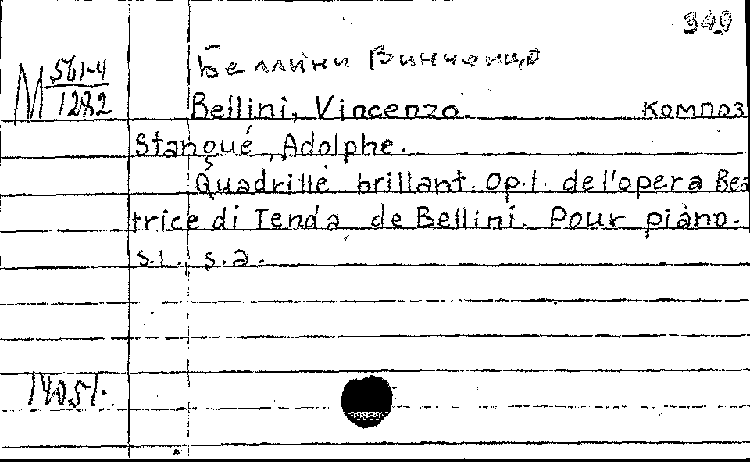 349
Беллини Винченцо
М 561-4
1282
Bellini, Vincenzo. композ
Stanqué, Adolphe.
Quadrille brillant. Op.1. de l'opera Bea
trice di Tenda de Bellini. Pour piano.
s.l., s.a.